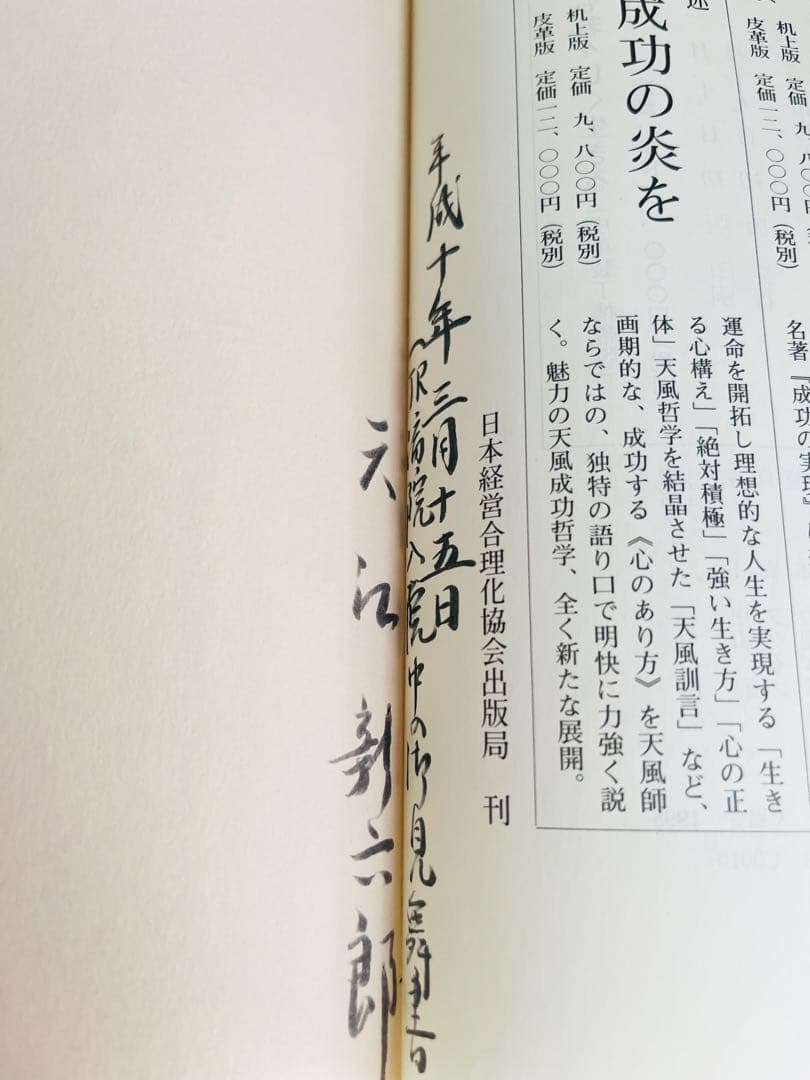 机上版 定価 九、八〇
皮革版 定価一二、〇〇〇円(税別)
名著『成功の実現』
述
成功の炎を
机上版 定価 九、八〇〇円(税別)
皮革版 定価一二、〇〇〇円(税別)
運命を開拓し理想的な人生を実現する「生き
る心構え」「絶対積極」「強い生き方」「心の正
体」天風哲学を結晶させた「天風訓言」など、
画期的な、成功する《心のあり方》を天風師
ならではの、独特の語り口で明快に力強く説
く。魅力の天風成功哲学、全く新たな展開。
日本経営合理化協会出版局 刊
平成十年三月十五日
JR病院入院中の御見舞
天江新六郎